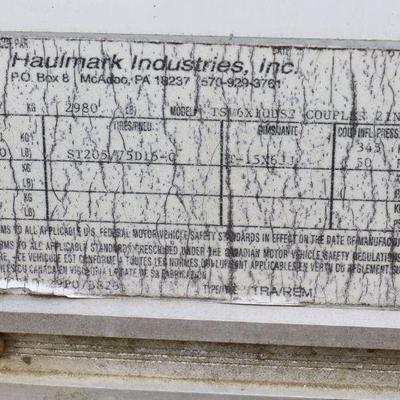 Haulmark Industries, Inc.
P.O. Box 8 McAdoo, PA 18237 570-929-3761
KG 2980 LB MODEL: COUPLER
TIRES/PNEU RIMS/JANTE COLD INFL. PRESS
KG 343
LB) ST205/75D15-C T-15X6JJ 50
KG
LB)
KG
LB)
TO ALL APPLICABLE U.S. FEDERAL MOTOR VEHICLE SAFETY STANDARDS IN EFFECT ON THE DATE OF MANUFACTUR
TO ALL APPLICABLE STANDARDS PRESCRIBED UNDER THE CANADIAN MOTOR VEHICLE SAFETY REGULATIONS
CE VEHICULE EST CONFORME A TOUTES LES NORMES QUI LUI SONT APPLICABLES EN VERTU DU REGLEMENT SU
CANADA EN VIGUEUR A LA DATE DE SA FABRICATION
TYPE/TYPE TRA/REM